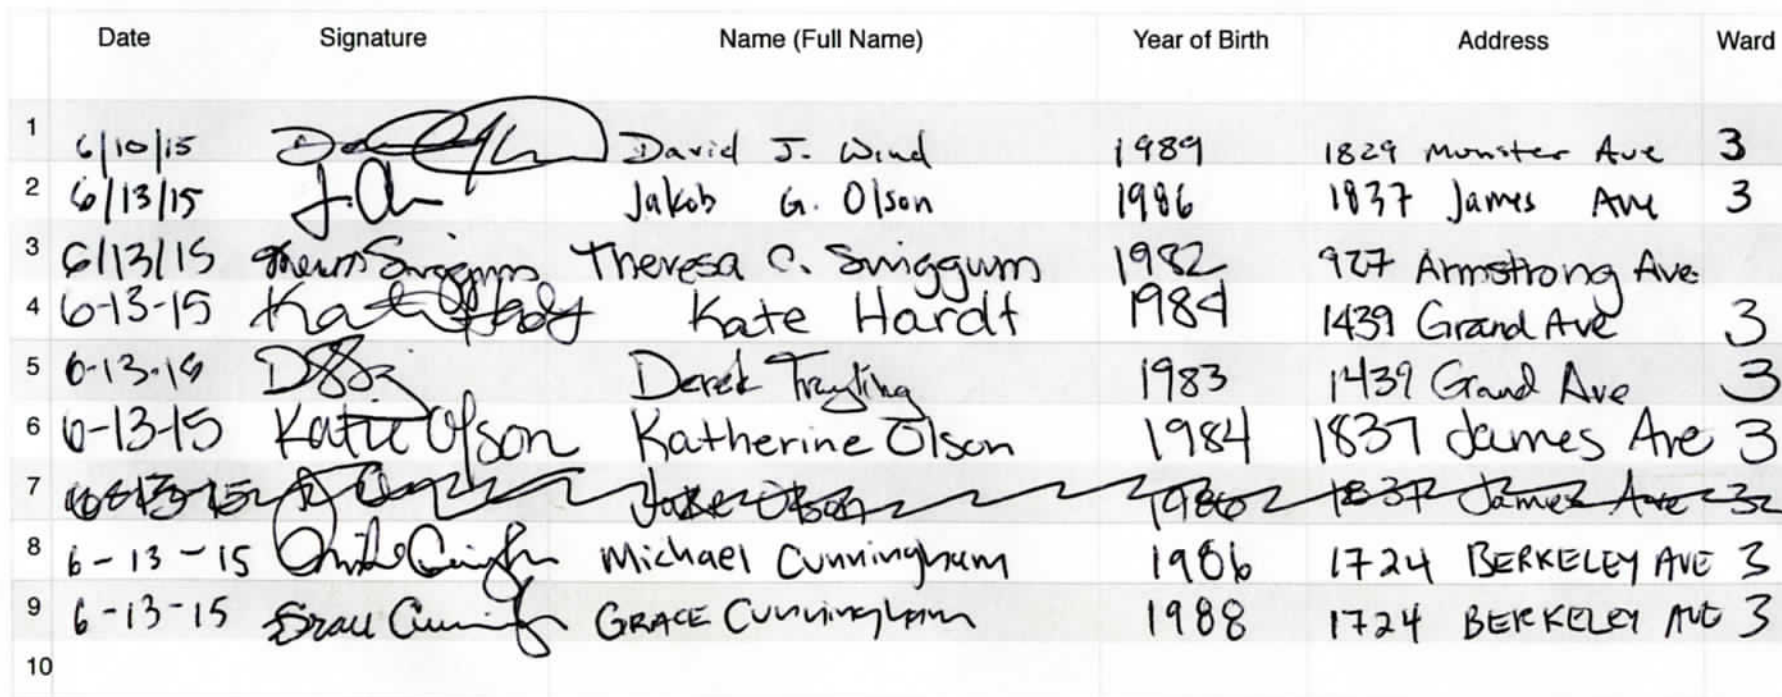 Date Signature Name (Full Name) Year of Birth Address Ward
1 6/10/15 David J. Wind 1989 1829 Munster Ave 3
2 6/13/15 J. Ol Jakob G. Olson 1986 1837 James Ave 3
3 6/13/15 Theresa Swiggum Theresa C. Swiggum 1982 927 Armstrong Ave
4 6-13-15 Kate Hardt Kate Hardt 1984 1439 Grand Ave 3
5 6-13-15 Derek 1983 1439 Grand Ave 3
6 6-13-15 Katie Olson Katherine Olson 1984 1837 James Ave 3
7 6-13-15 Jake Olson 1986 1837 James Ave 3
8 6-13-15 Michael Cunningham 1986 1724 BERKELEY AVE 3
9 6-13-15 Grace Cunningham GRACE Cunningham 1988 1724 BERKELEY AVE 3
10